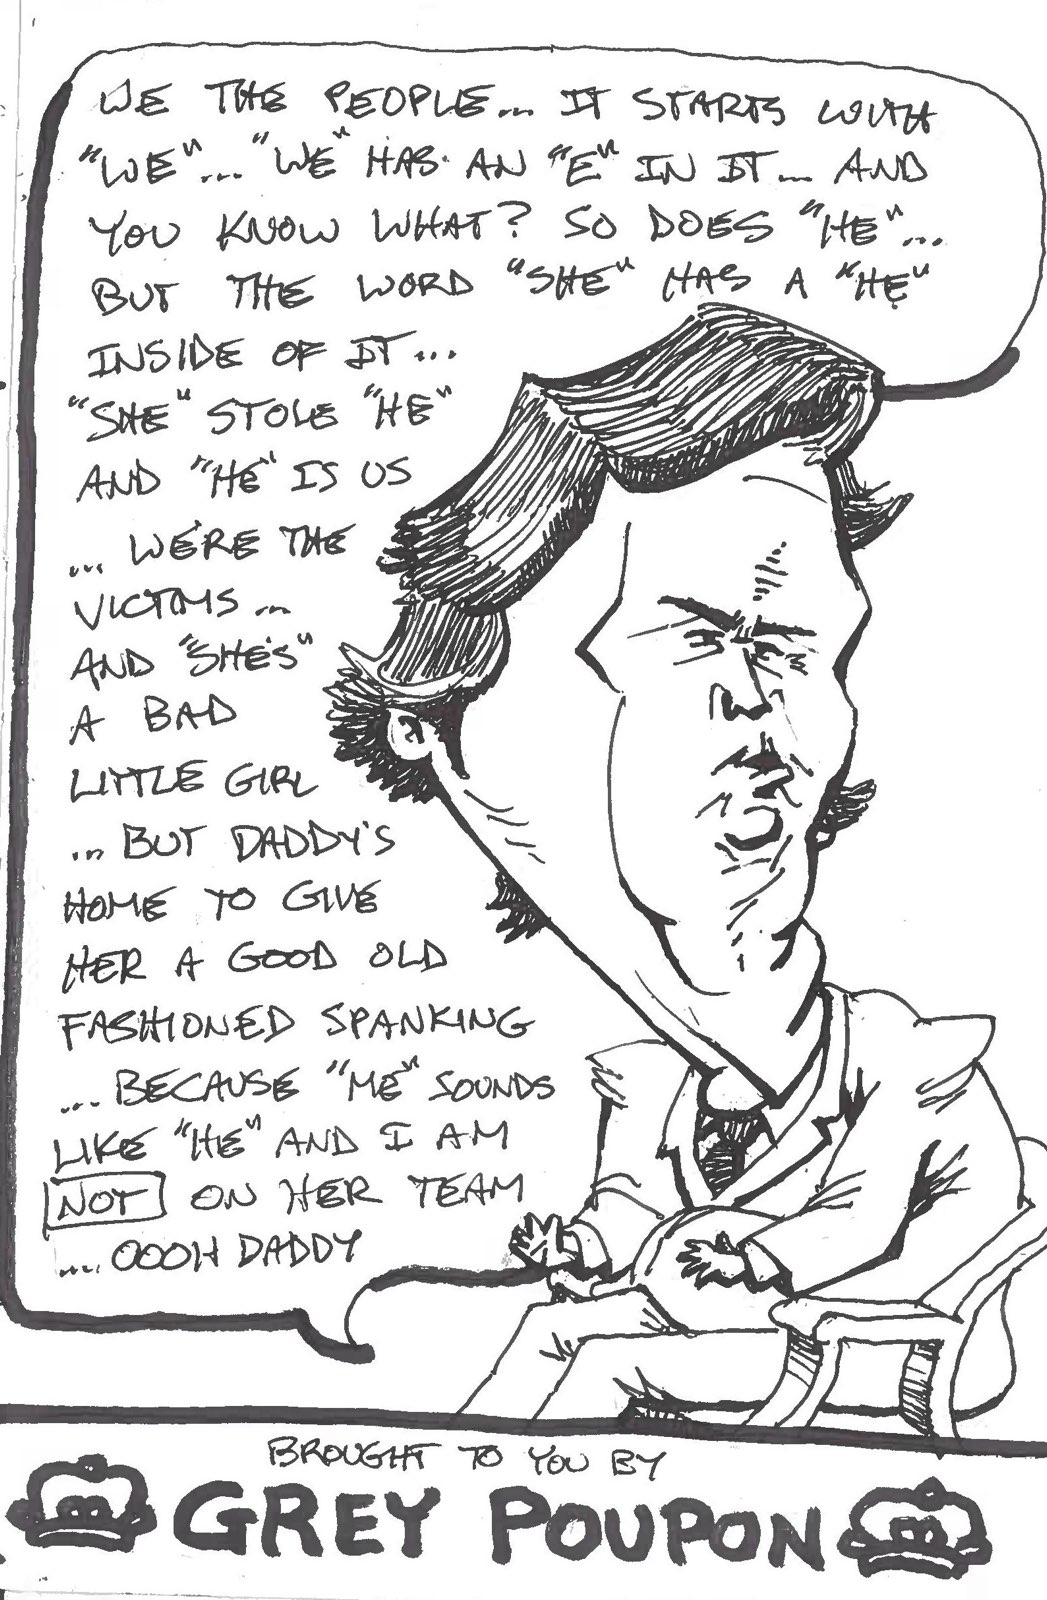 WE THE PEOPLE... IT STARTS WITH
"WE"... "WE" HAS AN "E" IN IT... AND
YOU KNOW WHAT? SO DOES "HE"...
BUT THE WORD "SHE" HAS A "HE"
INSIDE OF IT...
"SHE" STOLE "HE"
AND "HE" IS US
... WE'RE THE
VICTIMS...
AND "SHE'S"
A BAD
LITTLE GIRL
... BUT DADDY'S
HOME TO GIVE
HER A GOOD OLD
FASHIONED SPANKING
... BECAUSE "ME" SOUNDS
LIKE "HE" AND I AM
NOT ON HER TEAM
.... OOOH DADDY
BROUGHT TO YOU BY
GREY POUPON